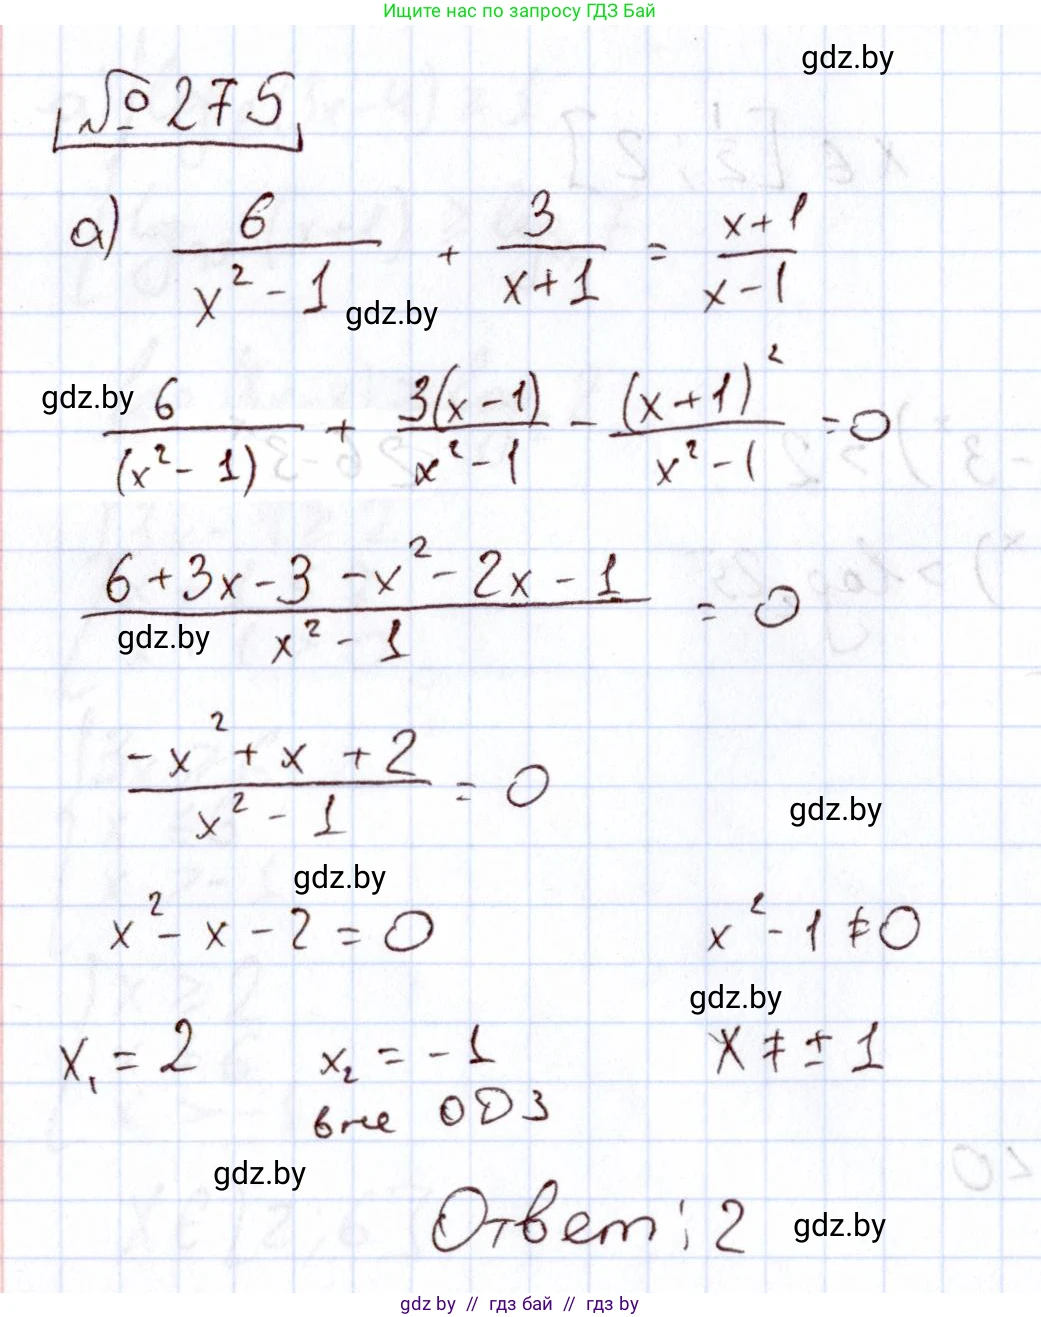 Ищите нас по запросу ГДЗ Бай
gdz.by
№ 275
а) 6/(x² - 1) + 3/(x + 1) = (x + 1)/(x - 1)
gdz.by
gdz.by
6/(x² - 1) + 3(x - 1)/(x² - 1) - (x + 1)²/(x² - 1) = 0
(6 + 3x - 3 - x² - 2x - 1)/(x² - 1) = 0
gdz.by
(-x² + x + 2)/(x² - 1) = 0
gdz.by
gdz.by
x² - x - 2 = 0 x² - 1 ≠ 0
gdz.by
x₁ = 2 x₂ = -1 x ≠ ± 1
вне ОДЗ
gdz.by
Ответ: 2
gdz.by
gdz by // гдз бай // гдз by